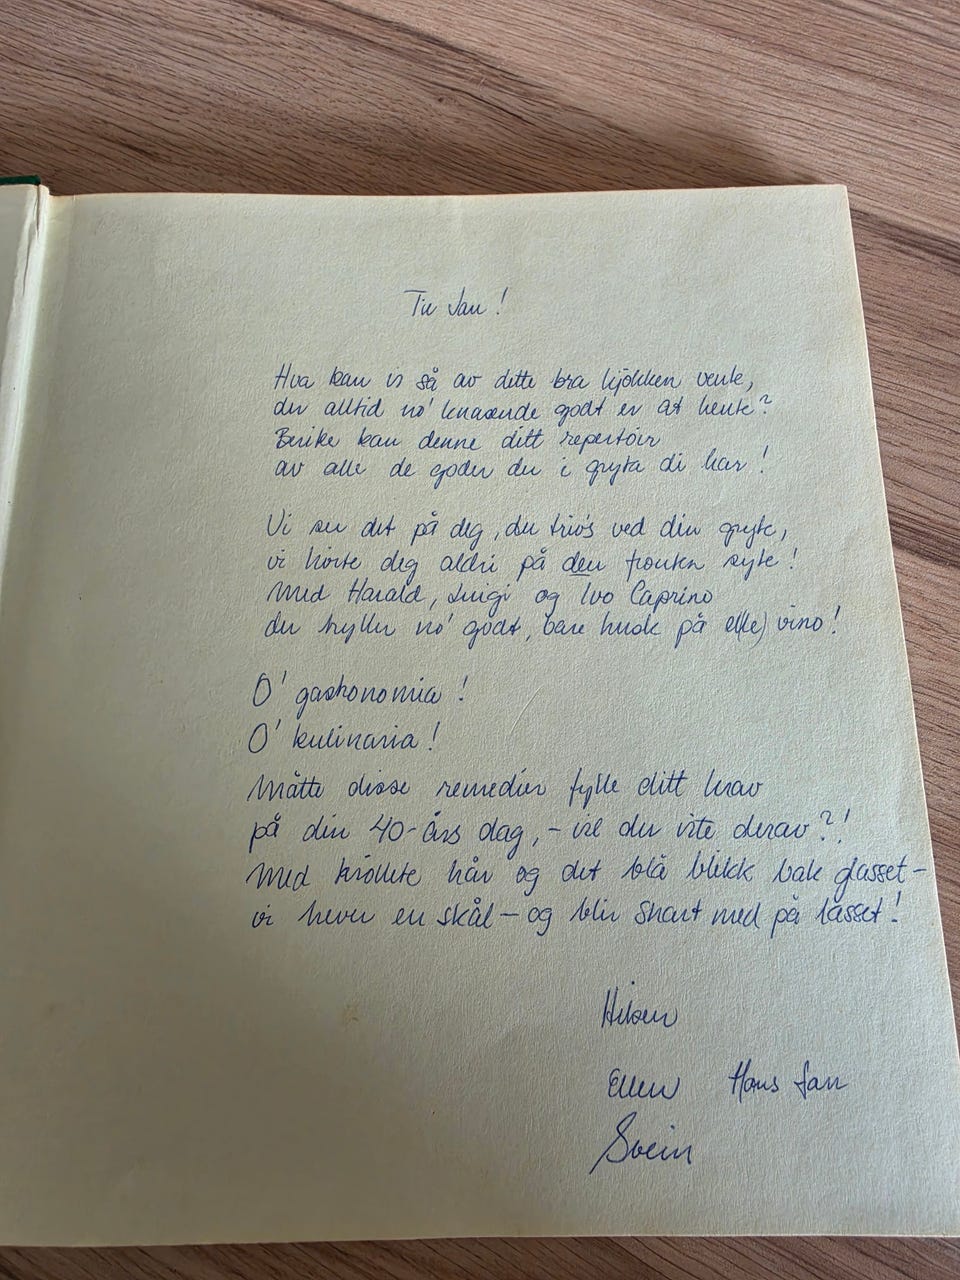 Til Jan!
Hva kan vi så av dette bra kjøkken vente,
der alltid no' knasende godt er at hente?
Berike kan denne ditt repertoir
av alle de goder du i gryta di har!
Vi ser det på deg, du trivs ved din gryte,
vi hørte deg aldri på den fronten syte!
Med Harald, Luigi og Ivo Caprino
du hyller no' godt, bare husk på el(le) vino!
O' gastronomia!
O' kulinaria!
Måtte disse remedier fylle ditt krav
på din 40-års dag, - vil du vite derav?!
Med krøllete hår og det blå blikk bak glasset -
vi hever en skål - og blir snart med på lasset!
Hilsen
Ellen Hans Jan
Svein